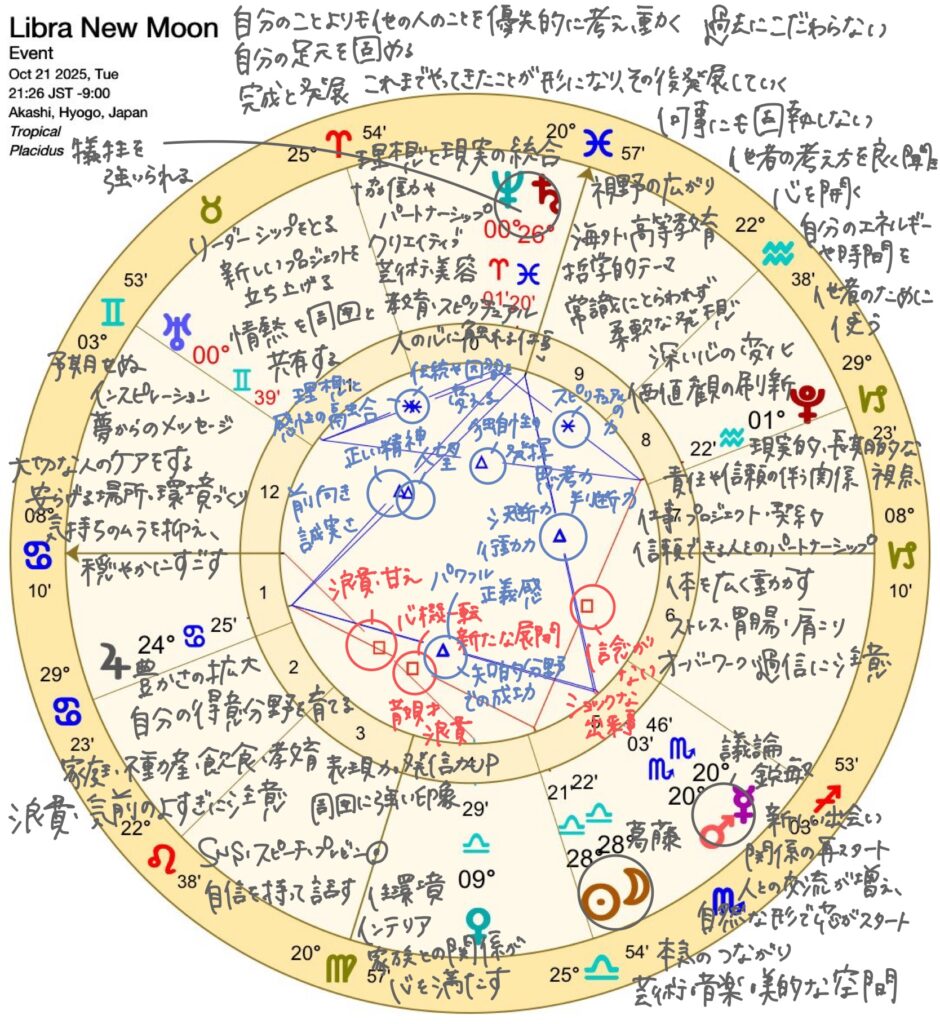 Libra New Moon
Event
Oct 21 2025, Tue
21:26 JST -9:00
Akashi, Hyogo, Japan
Tropical
Placidus
自分のことよりも他の人のことを優先的に考え、動く
過去にこだわらない
自分の足元を固める
完成と発展 これまでやってきたことが形になり、その後発展していく
何事にも固執しない
他者の考え方を良く聞き
心を開く
自分のエネルギー
や時間を
他者のために
使う
犠牲を
強いられる
25° ♈ 54'
20° ♓ 57'
22° ♒ 38'
29° ♑ 23'
08° ♑ 10'
03° ♐ 53'
♏
25° ♎ 54'
20° ♍ 57'
22° ♌ 38'
29° ♋ 23'
08° ♋ 10'
03° ♊ 53'
♉
理想と現実の統合
協働力や
パートナーシップ
クリエイティブ
芸術・美容
教育・スピリチュアル
人の心に触れる仕事
♆ ♄
00° 26°
♈ ♓
01' 20'
視野の広がり
海外・高等教育
哲学的テーマ
常識にとらわれず
柔軟な発想
深い心の変化
価値観の刷新
♇ 01° ♒ 22'
リーダーシップをとる
新しいプロジェクトを
立ち上げる
情熱を周囲と
共有する
♅ 00° ♊ 39'
予期せぬ
インスピレーション
夢からのメッセージ
大切な人のケアをする
安らげる場所・環境づくり
気持ちのムラを抑え、
穏やかにすごす
現実的・長期的な
視点
責任や信頼の伴う関係
仕事・プロジェクト・契約
信頼できる人とのパートナーシップ
体を広く動かす
ストレス・胃腸・肩こり
オーバーワーク・過信に注意
♃ 24° ♋ 25'
豊かさの拡大
自分の得意分野を育てる
家庭・不動産・飲食・教育
浪費・気前のよすぎに注意
表現力・発信力UP
周囲に強い印象
SNS・スピーチ・プレゼン◎
自信を持って話す
29'
♎
09°
♀
住環境
インテリア
家族との関係が
心を満たす
21' 22'
♎ ♎
28° 28°
☉ ☽
葛藤
46'
03' ♏
♏ 20°
20° ☿
♂
議論
鋭敏
新しい出会い
関係の再スタート
人との交流が増え、
自然な形で恋がスタート
本気のつながり
芸術・音楽・美的な空間
理想と
感性の高まり
伝統や因習を
変える
正しい精神
希望
前向き
誠実さ
独創性の
発揮
スピリチュアルの
力
思考力
判断力
決断力
行動力
浪費・甘え
パワフル
正義感
心機一転
新たな展開
知的分野
での成功
浪費
信念が
ない
ショックな
出来事
1
2
3
4
5
6
7
8
9
10
12